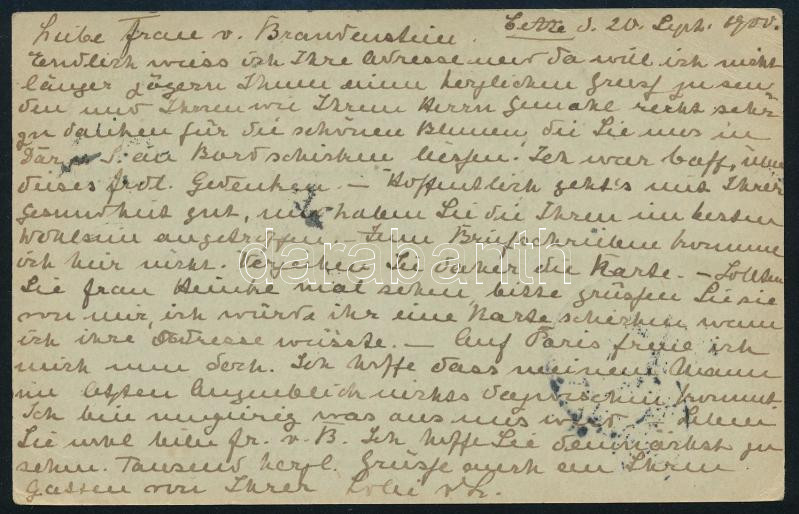 Cette d. 20. Sept. 1900.
Liebe Frau v. Brandenstein,
Endlich weiss ich Ihre Adresse und da will ich nicht
länger zögern Ihnen einen herzlichen Gruss zu sen-
den und Ihnen wie Ihrem Herrn Gemahl recht sehr
zu danken für die schönen Blumen, die Sie uns in
Där S. an Bord schicken liessen. Ich war baff, über
dieses frdl. Gedenken. — Hoffentlich geht's mit Ihrer
Gesundheit gut, und haben Sie die Ihren im besten
Wohlsein angetroffen. Zum Briefschreiben komme
ich hier nicht. Verzeihen Sie daher die Karte. — Sollten
Sie Frau Heinke mal sehen, bitte grüssen Sie sie
von mir, ich würde ihr eine Karte schicken wenn
ich ihre Adresse wüsste. — Auf Paris freue ich
mich nun doch. Ich hoffe dass meinem Mann
im letzten Augenblick nichts dazwischen kommt
Ich bin neugierig was aus uns wird. — Leben
Sie wohl liebe Fr. v. B. Ich hoffe Sie demnächst zu
sehen. Tausend herzl. Grüsse auch an Ihren
Gatten von Ihrer
darabanth